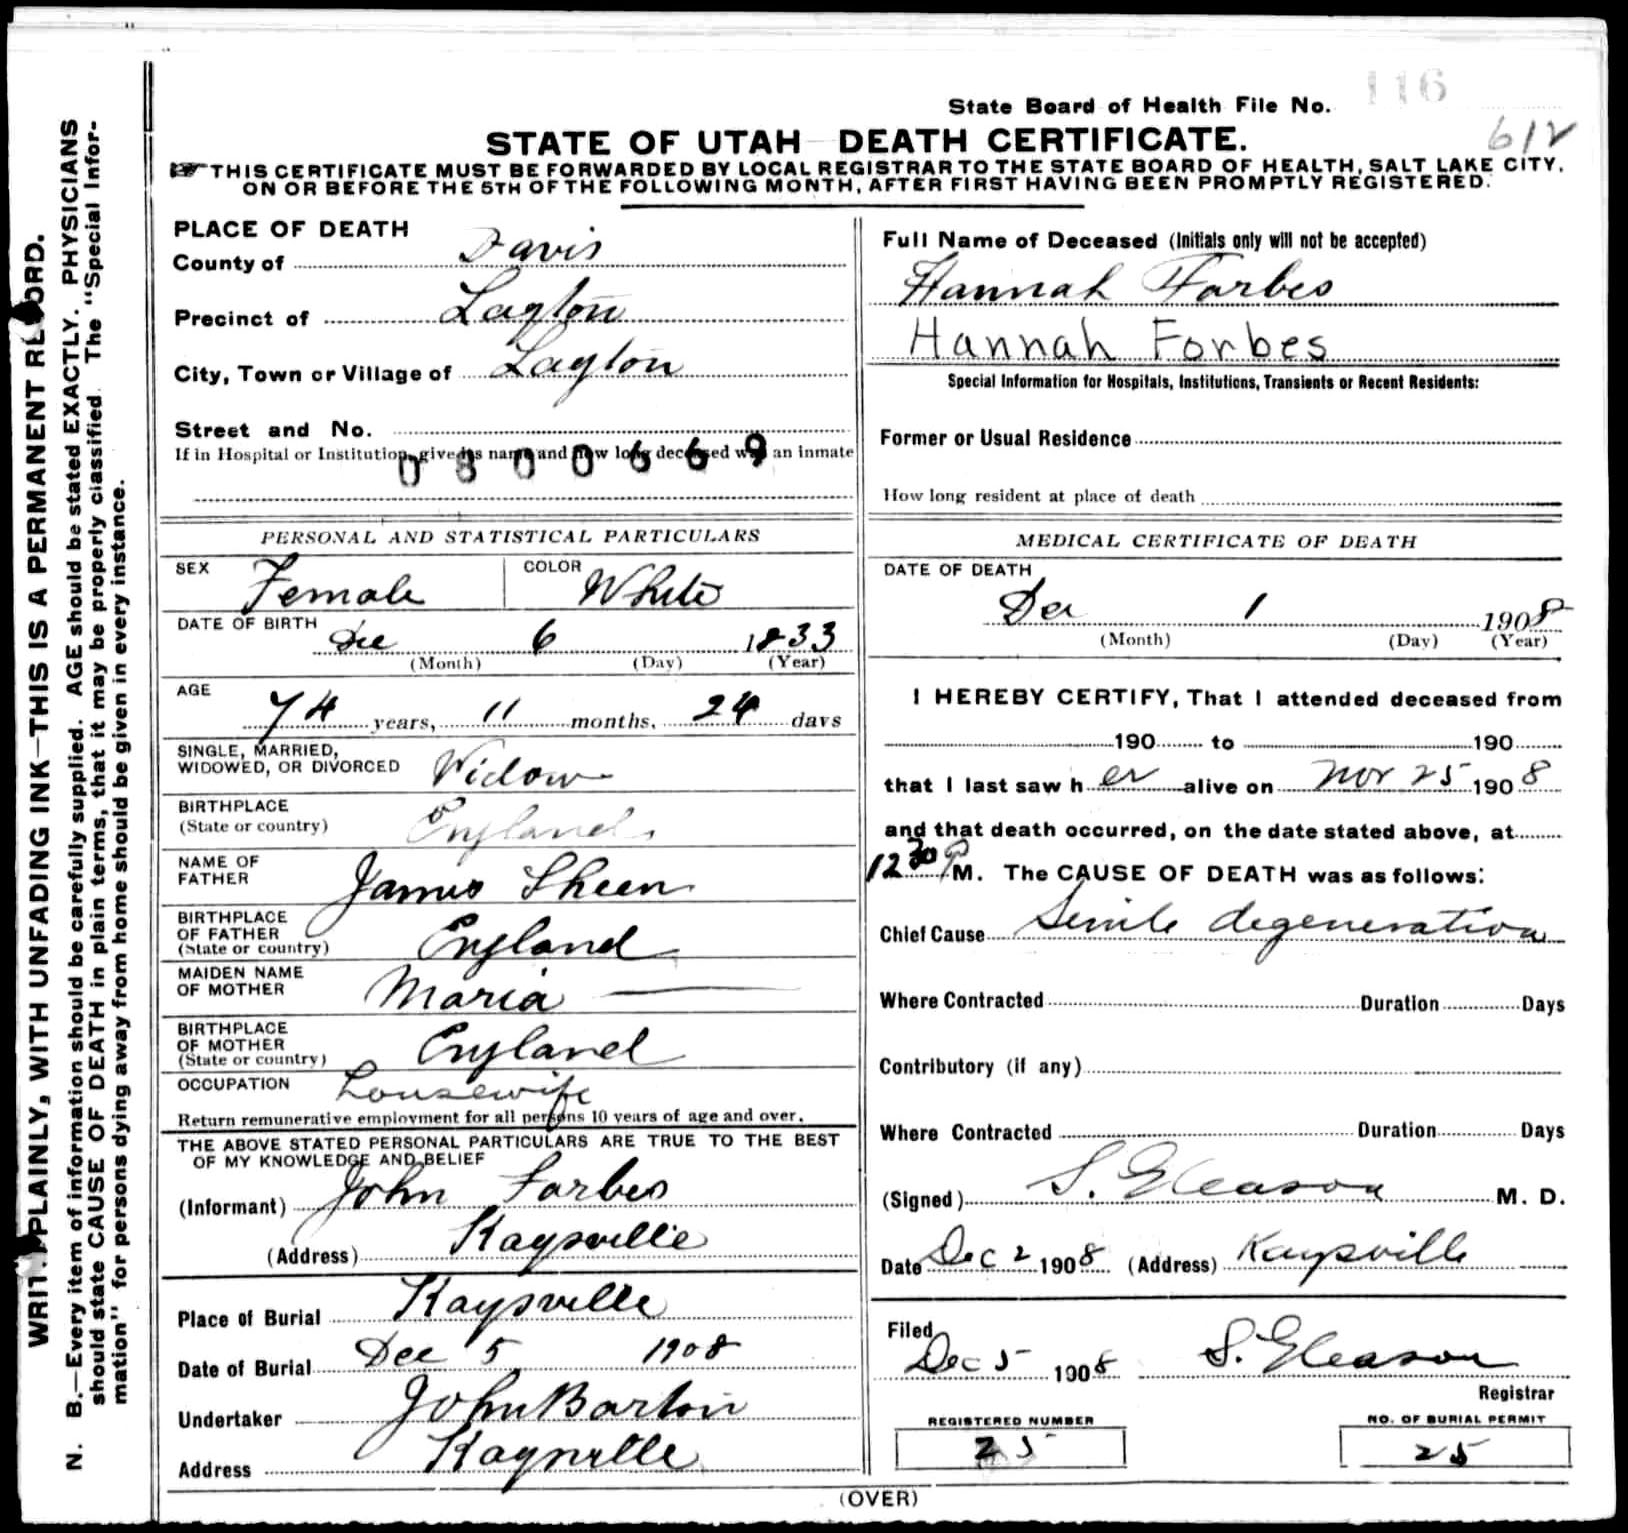 WRITE PLAINLY, WITH UNFADING INK—THIS IS A PERMANENT RECORD.
N. B.—Every item of information should be carefully supplied. AGE should be stated EXACTLY. PHYSICIANS
should state CAUSE OF DEATH in plain terms, that it may be properly classified. The "Special Infor-
mation" for persons dying away from home should be given in every instance.
State Board of Health File No. 116
612
STATE OF UTAH—DEATH CERTIFICATE.
☞ THIS CERTIFICATE MUST BE FORWARDED BY LOCAL REGISTRAR TO THE STATE BOARD OF HEALTH, SALT LAKE CITY,
ON OR BEFORE THE 5TH OF THE FOLLOWING MONTH, AFTER FIRST HAVING BEEN PROMPTLY REGISTERED.
PLACE OF DEATH
County of Davis
Precinct of Layton
City, Town or Village of Layton
Street and No.
If in Hospital or Institution, give its name and how long deceased was an inmate
0800669
PERSONAL AND STATISTICAL PARTICULARS
SEX Female COLOR White
DATE OF BIRTH Dec 6 1833
(Month) (Day) (Year)
AGE 74 years, 11 months, 24 days
SINGLE, MARRIED,
WIDOWED, OR DIVORCED Widow
BIRTHPLACE
(State or country) England
NAME OF
FATHER James Sheen
BIRTHPLACE
OF FATHER
(State or country) England
MAIDEN NAME
OF MOTHER Maria —
BIRTHPLACE
OF MOTHER
(State or country) England
OCCUPATION Housewife
Return remunerative employment for all persons 10 years of age and over.
THE ABOVE STATED PERSONAL PARTICULARS ARE TRUE TO THE BEST
OF MY KNOWLEDGE AND BELIEF
(Informant) John Forbes
(Address) Kaysville
Place of Burial Kaysville
Date of Burial Dec 5 1908
Undertaker John Barton
Address Kaysville
Full Name of Deceased (Initials only will not be accepted)
Hannah Forbes
Hannah Forbes
Special Information for Hospitals, Institutions, Transients or Recent Residents:
Former or Usual Residence
How long resident at place of death
MEDICAL CERTIFICATE OF DEATH
DATE OF DEATH
Dec 1 1908
(Month) (Day) (Year)
I HEREBY CERTIFY, That I attended deceased from
190 to 190
that I last saw her alive on Nov 25 1908
and that death occurred, on the date stated above, at
12 30 P M. The CAUSE OF DEATH was as follows:
Chief Cause Senile degeneration
Where Contracted Duration Days
Contributory (if any)
Where Contracted Duration Days
(Signed) S. Gleason M. D.
Date Dec 2 1908 (Address) Kaysville
Filed
Dec 5 1908 S. Gleason
Registrar
REGISTERED NUMBER NO. OF BURIAL PERMIT
25 25
(OVER)